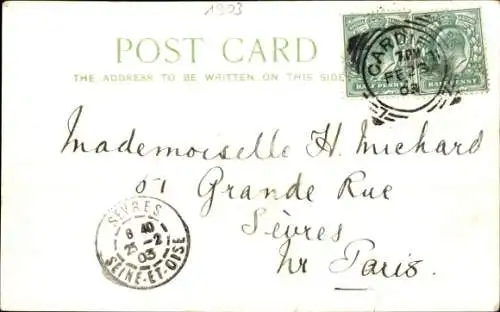 1903
POST CARD
THE ADDRESS TO BE WRITTEN ON THIS SIDE
HALF PENNY
HALF PENNY
CARDIFF
FE 23
03
Mademoiselle H. Michard
51 Grande Rue
Sèvres
nr Paris.
SEVRES
8 40
25 -2
03
SEINE-ET-OISE